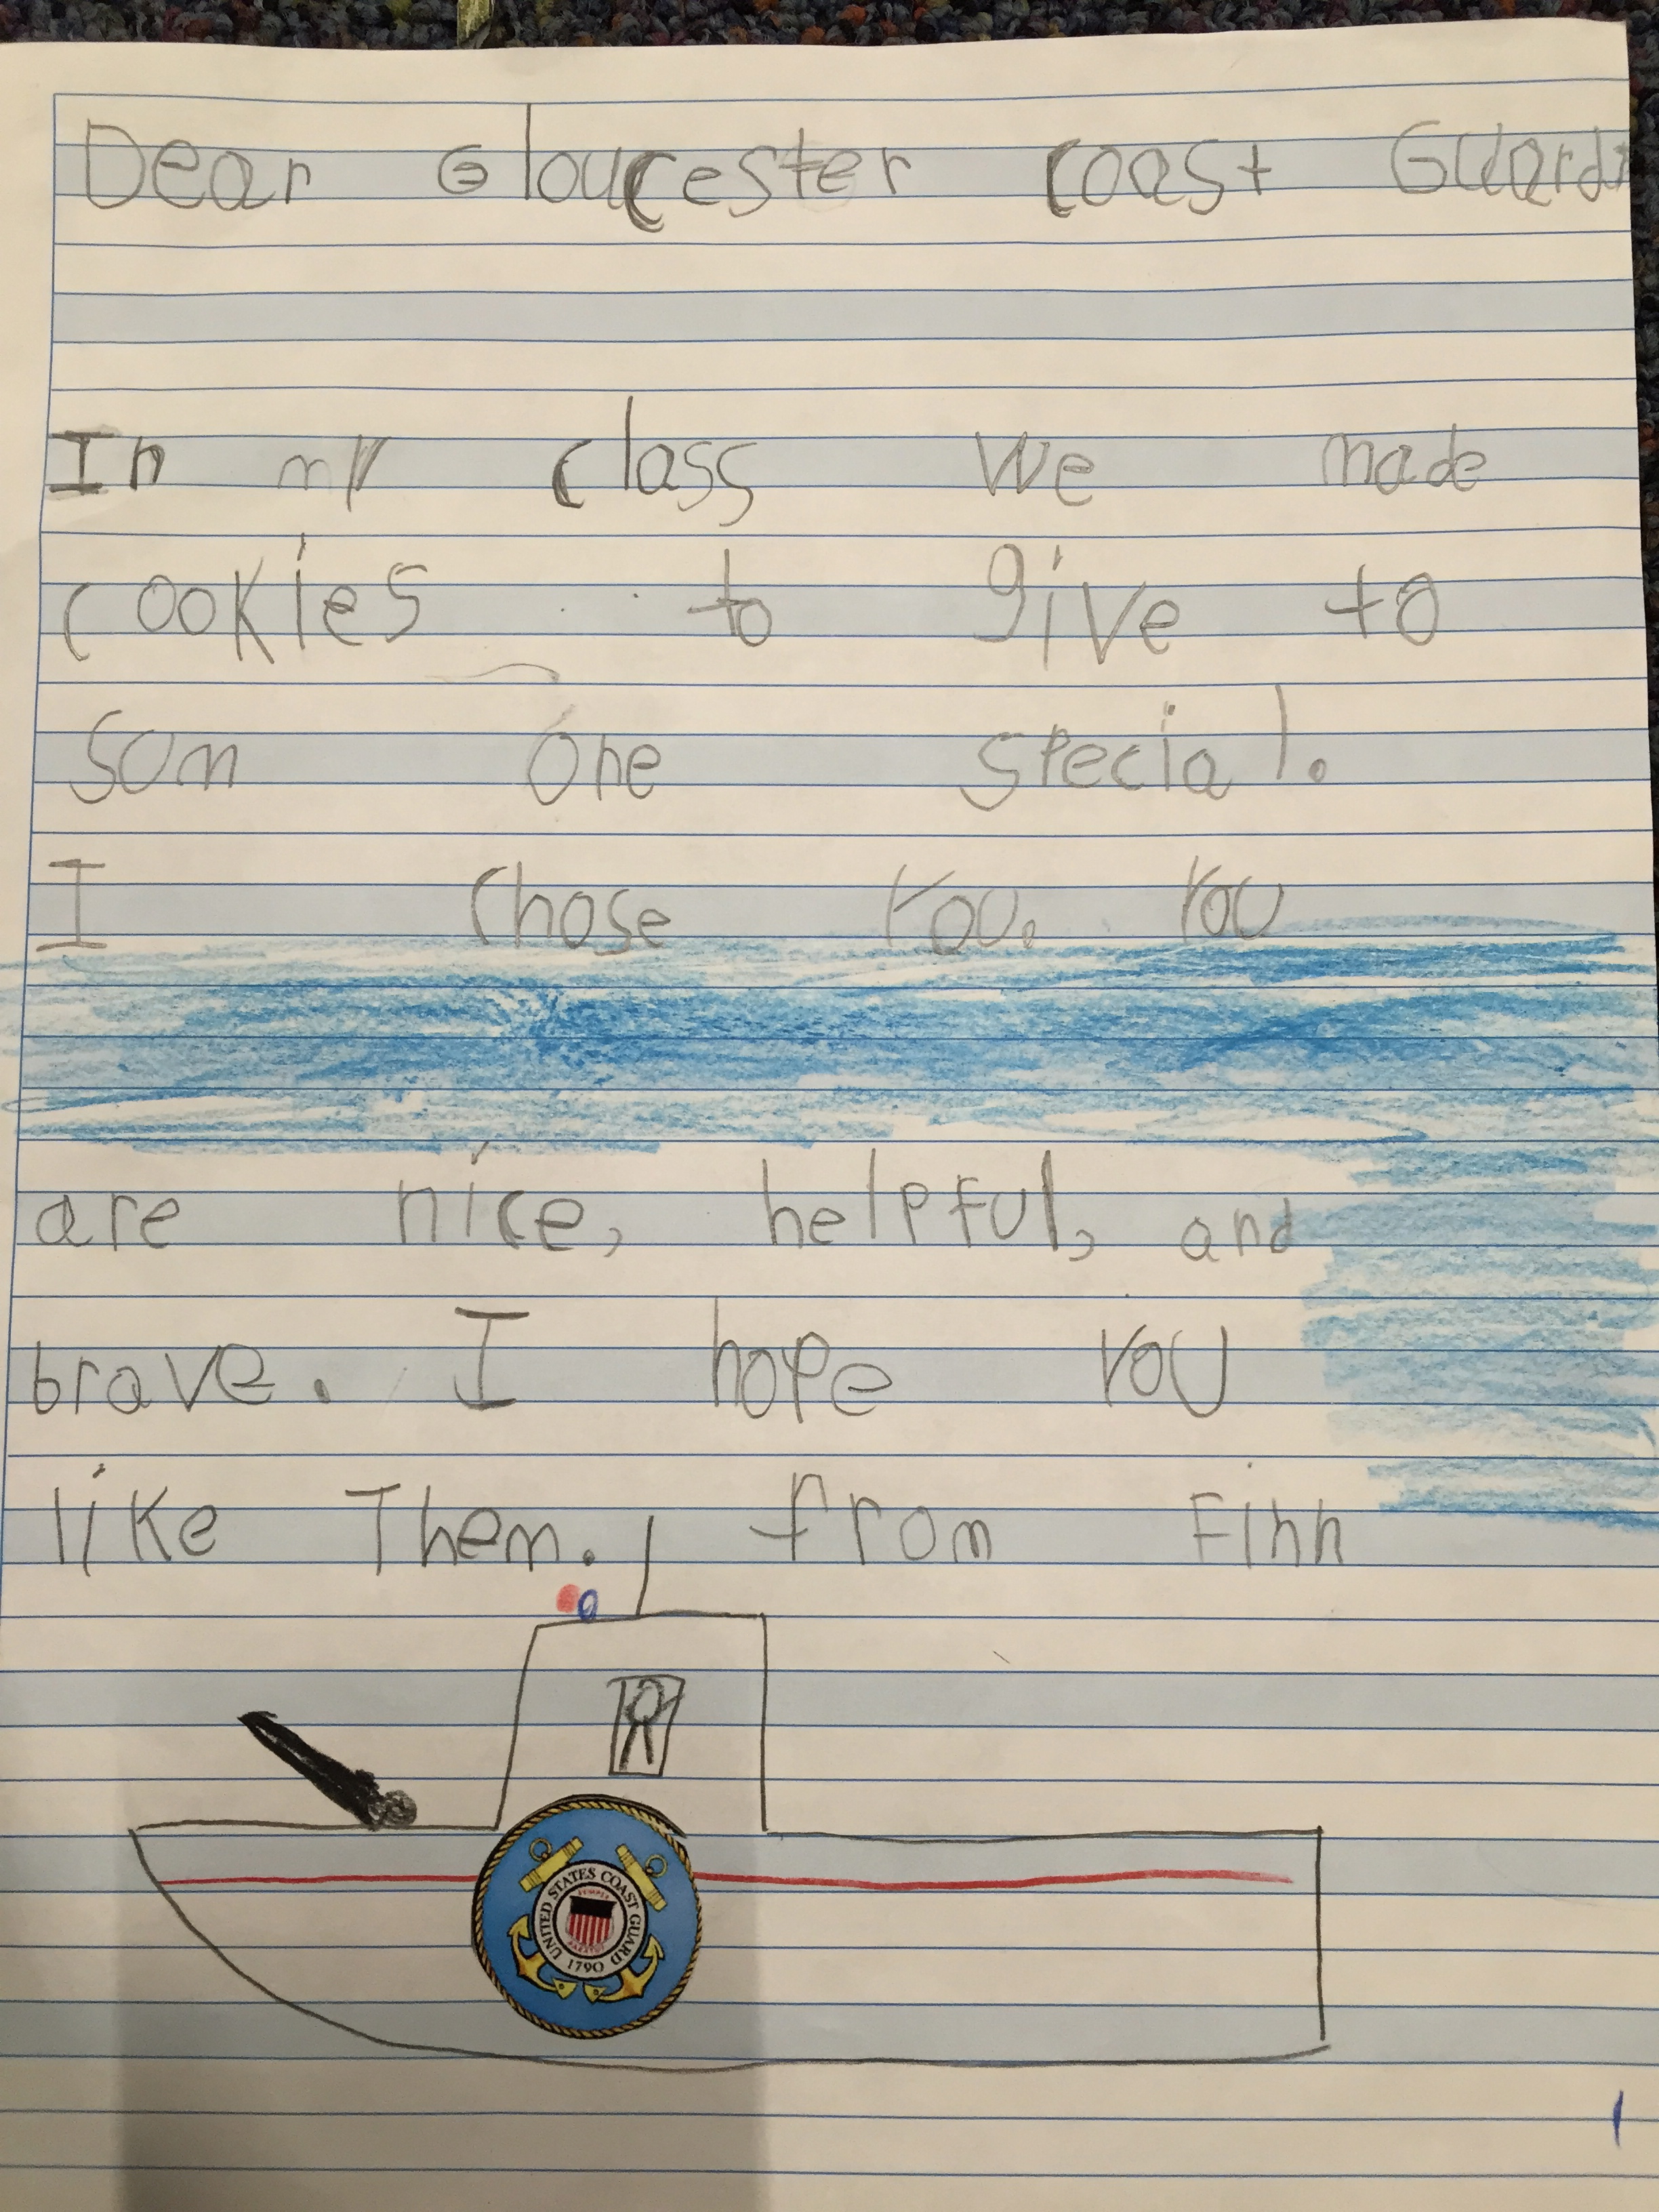 Dear Gloucester Coast Guard,
In my class we made
cookies to give to
som one special.
I chose you. You
are nice, helpful, and
brave. I hope you
like Them. from Finn
UNITED STATES COAST GUARD
SEMPER
PARATUS
1790